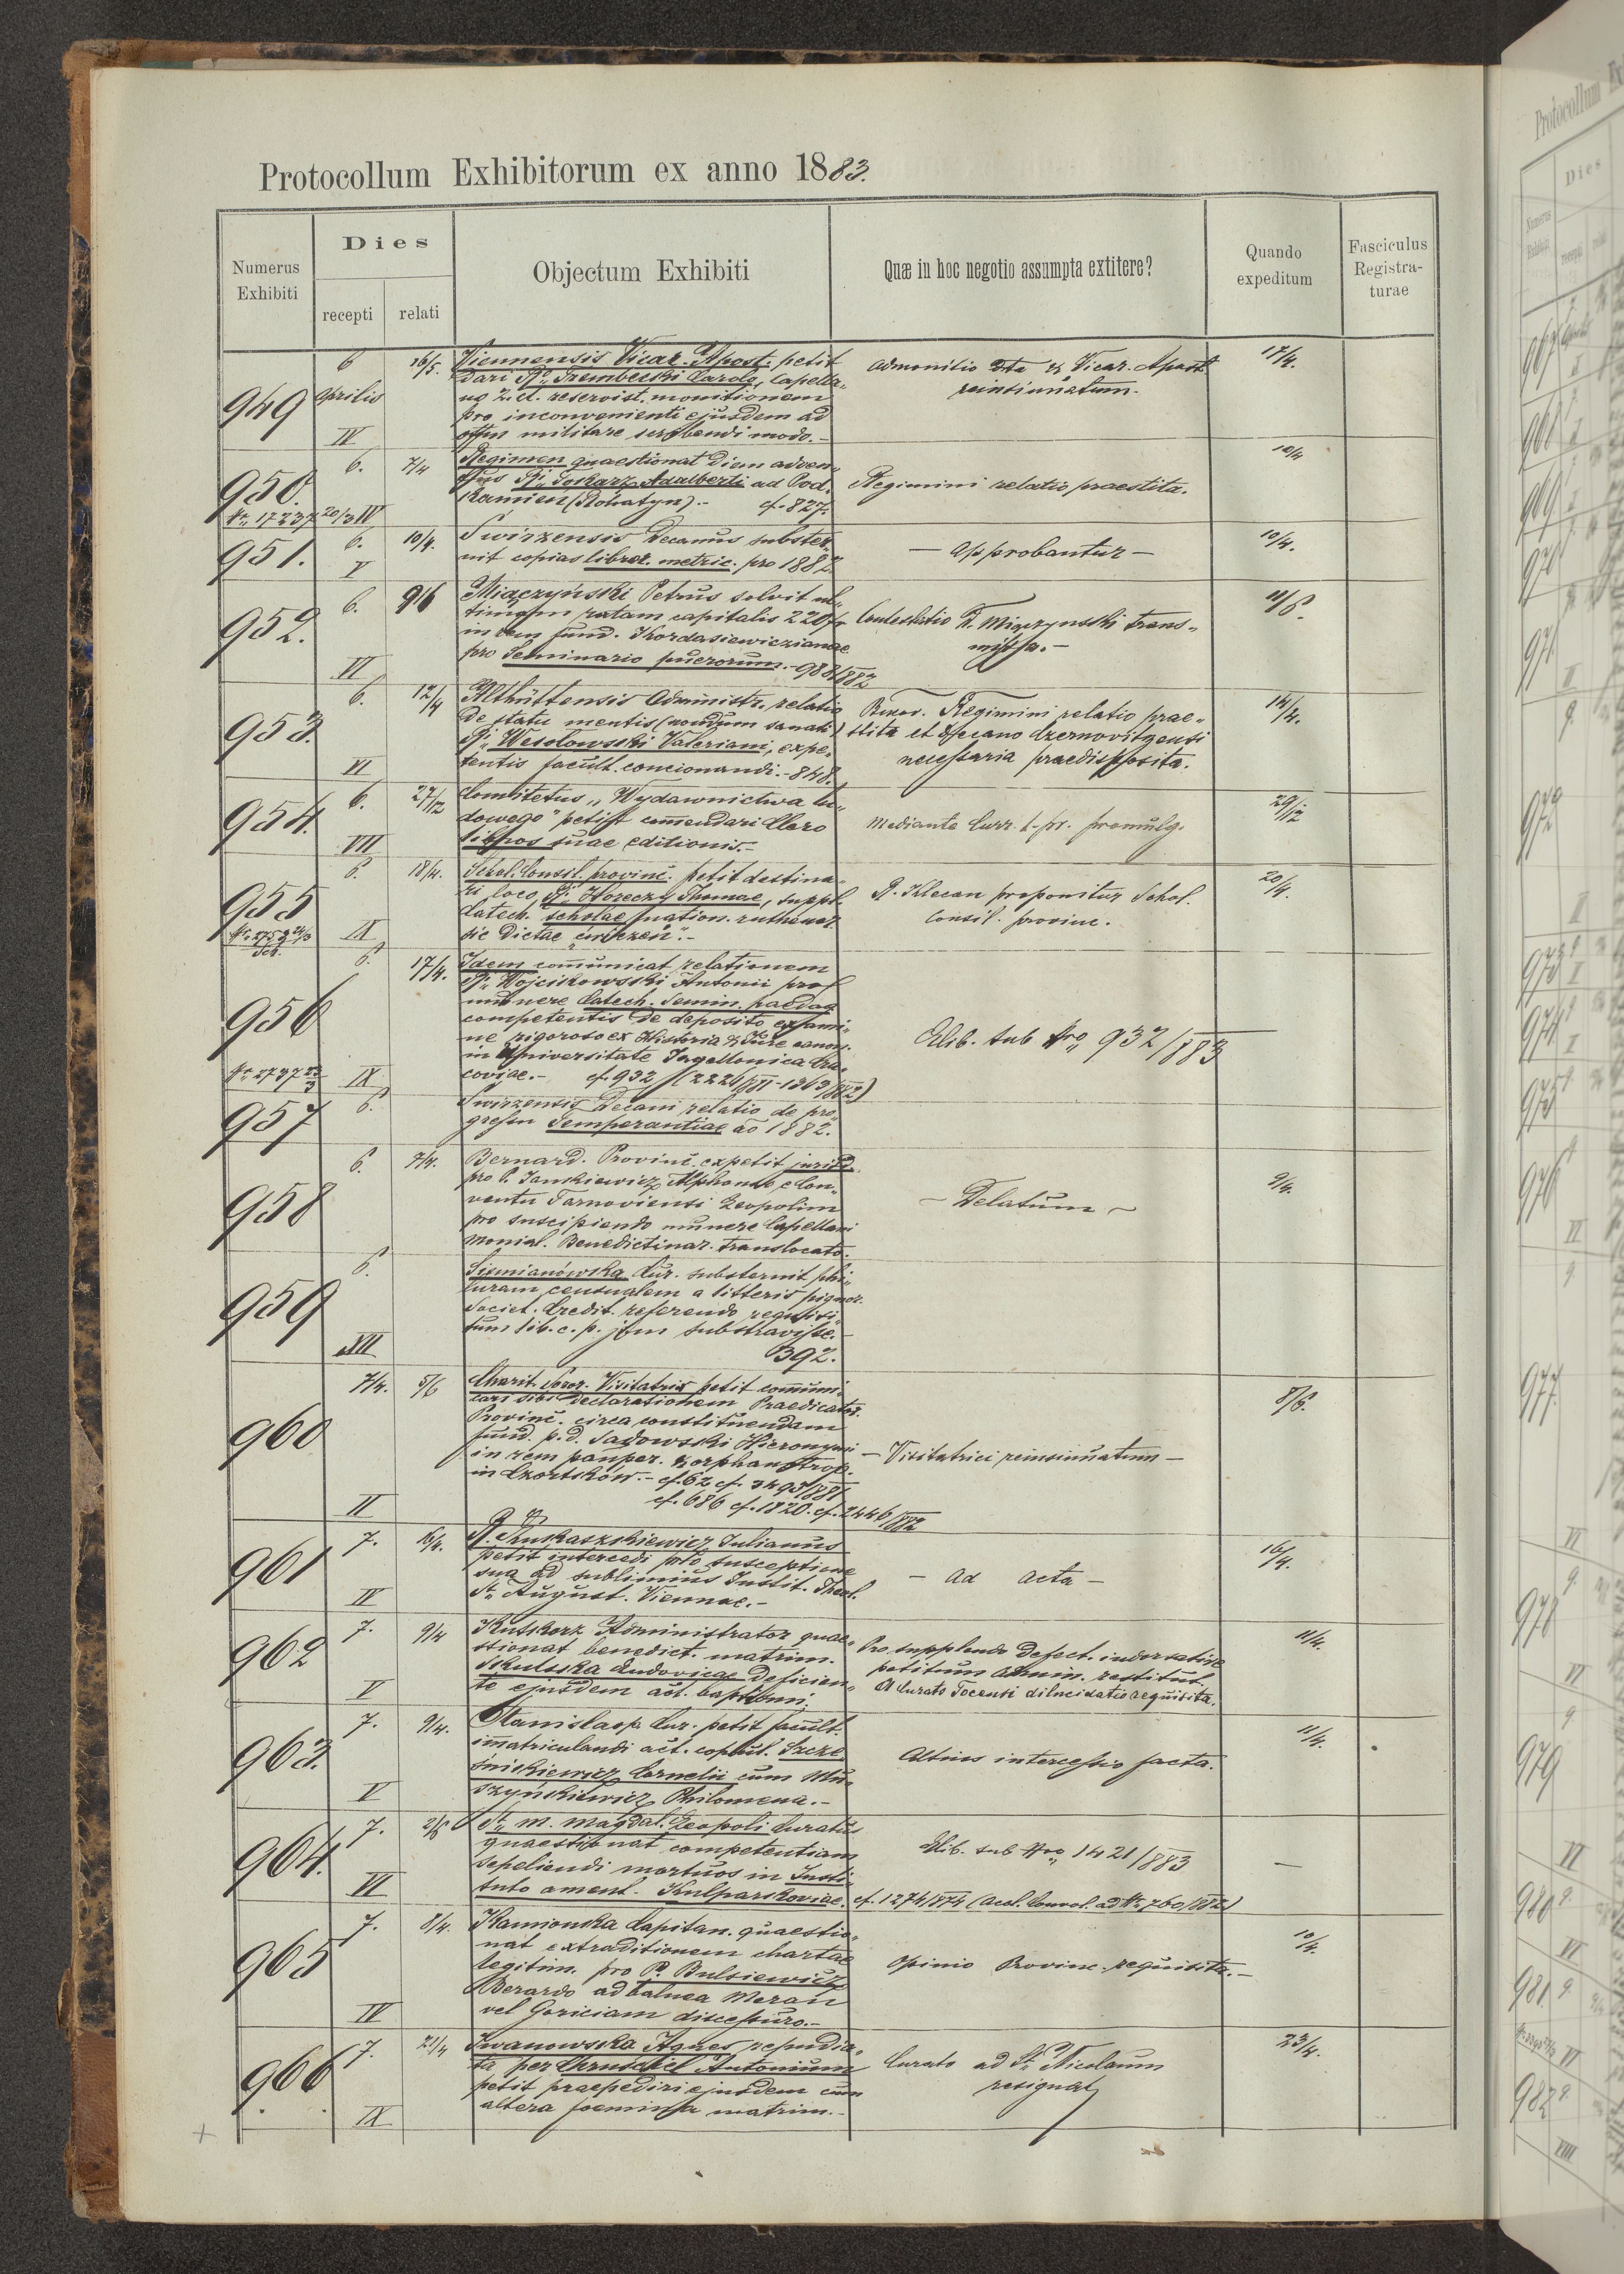 Protocollum Exhibitorum ex anno 1883.
Numerus Exhibiti
Dies
recepti
relati
Objectum Exhibiti
Quæ in hoc negotio assumpta extitere?
Quando expeditum
Fasciculus Registra-
turae
949
6 Aprilis
IV
16/5.
Viennensis Vicar. Apost. petit
dari Rdo Trembecki Carolo, Capella-
no z. ct. reservist. monitionem
pro inconvenienti ejusdem ad
offm militare scribendi modo.-
admonitio dta & Vicar. Apost
reinsinuatum.
17/4.
950.
Nr. 17237 20/3
6.
IV
7/4
Regimen quaestionat diem adven-
tus Rdi Tokarz Adalberti ad Pod-
kamien (Rohatyn).- cf. 827.
Regimini relatio praestita.
10/4
951.
6.
V
10/4.
Swirzensis Decanus subster-
nit copias libror. metric. pro 1882.
- approbantur -
10/4.
952.
6.
VI
9/6
Miączyński Petrus solvit ul-
timam ratam capitalis 220 fr
in rem fund. Kordasiewiczianae
pro Seminario puerorum.- 988/882
Contestatio D. Miączynski trans-
missa.-
11/6.
953.
6.
VI
12/4
Althüttensis Administr. relatio
de statu mentis (nondum sanati)
Rdi Wesołowski Valeriani, expe-
tentis facult. concionandi.- 848.
Bucov. Regimini relatio prae-
stita et Decano Czernovitzensi
necessaria praedisposita.
14/4.
954.
6.
VII
27/12
Comitetus „Wydawnictwa lu-
dowego" petit commendari Clero
libros suae editionis.-
Mediante Curr. 1-pr. promulg.
29/12
955
Nr. 2759 24/3
Sch.
6.
IX
18/4.
Schol. Consil. provinc. petit destina-
ri loco Rdi Horeczy Thomae, suppl.
Catech. scholae nation. ruthenor.
sic dictae „ćwiczeń".-
R. Klecan proponitur Schol.
Consil. provinc.
20/4.
956
Nr. 2737 23/3
6.
IX
17/4.
Idem communicat relationem
Rdi Wojcikowski Antonii pro
munere Catech. Semin. paedag
competentis de deposito exami-
ne rigoroso ex Historia & Jure canon.
in Universitate Jagellonica Cra-
coviae.- cf. 932 / (2226/881 - 1363/882)
Elib. sub Nro 932/883
957
6.
Swirzensis Decani relatio de pro-
gressu Temperantiae ao 1882.
958
6.
7/4.
Bernard. Provinc. expetit jurisd.
pro P. Jankiewicz Alphonso e Con-
ventu Tarnoviensi Leopolim
pro suscipiendo munere Capellani
monial. Benedictinar. translocato.
- Delatum -
9/4.
959
6.
XII
Siemianówka Cur. substernit
turam censualem a litteris pignor.
Societ. Credit. referendo requisi-
tum sib. c. p. jam substravisse.-
392.
960
7/4.
II
5/6
Charit. Soror. Visitatrix petit communi-
cari sibi declarationem Praedicator.
Provinc. circa constituendam
fund. p. d. Sadowski Hieronymi
in rem pauper. & orphanotrop.
in Czortków.- cf. 62 cf. 3493/881
cf. 686 cf. 1820. cf. 2446/882
- Visitatrici reinsinuatum -
8/6.
961
7.
IV
16/4.
R. Łukaszkiewicz Julianus
petit intercedi pro susceptione
sua ad sublimius Instit. Theol.
St. August. Viennae.-
- ad acta -
16/4.
962
7.
V
9/4
Kutkorz Administrator quae-
stionat benedict. matrim.
Skulska Ludovicae deficien-
te ejusdem act. baptismi.
Pro supplendo defect. indorsative
petitum Admin. restitut.
A Curato Tocensi dilucidatio requisita.
11/4.
963.
7.
V
9/4.
Stanislaop. Cur. petit facult.
immatriculandi act. copul. Szcze-
śnikiewicz Cornelii cum Mu-
szyńskiewicz Philomena.-
Altius intercessio facta.
11/4.
964.
7.
VI
2/6
St. M. Magdal. Leopoli Curatus
quaestionat competentiam
sepeliendi mortuos in Insti-
tuto ament. Kulparkoviae.
Elib. sub Nro 1421/883
cf. 1274/874 (acol. Convol. ad Nr. 760/882)
-
965
7.
IV
8/4.
Kamionka Capitan. quaestio-
nat extraditionem chartae
legitim. pro P. Bulsiewicz
Berardo ad balnea Meran
vel Goriciam discessuro.-
Opinio Provinc. requisita.-
10/4.
966
7.
IX
21/4
Iwanowska Agnes repudia-
ta per Chruschtel Antonium
petit praepediri ejusdem cum
altera foemina matrim.-
Curato ad St. Nicolaum
resignat
23/4.
Protocollum Ex
Dies
Numerus
Exhibiti
recepti
967
968
969
970
971
972
973
974
975
976
977
978
979
980
981
982